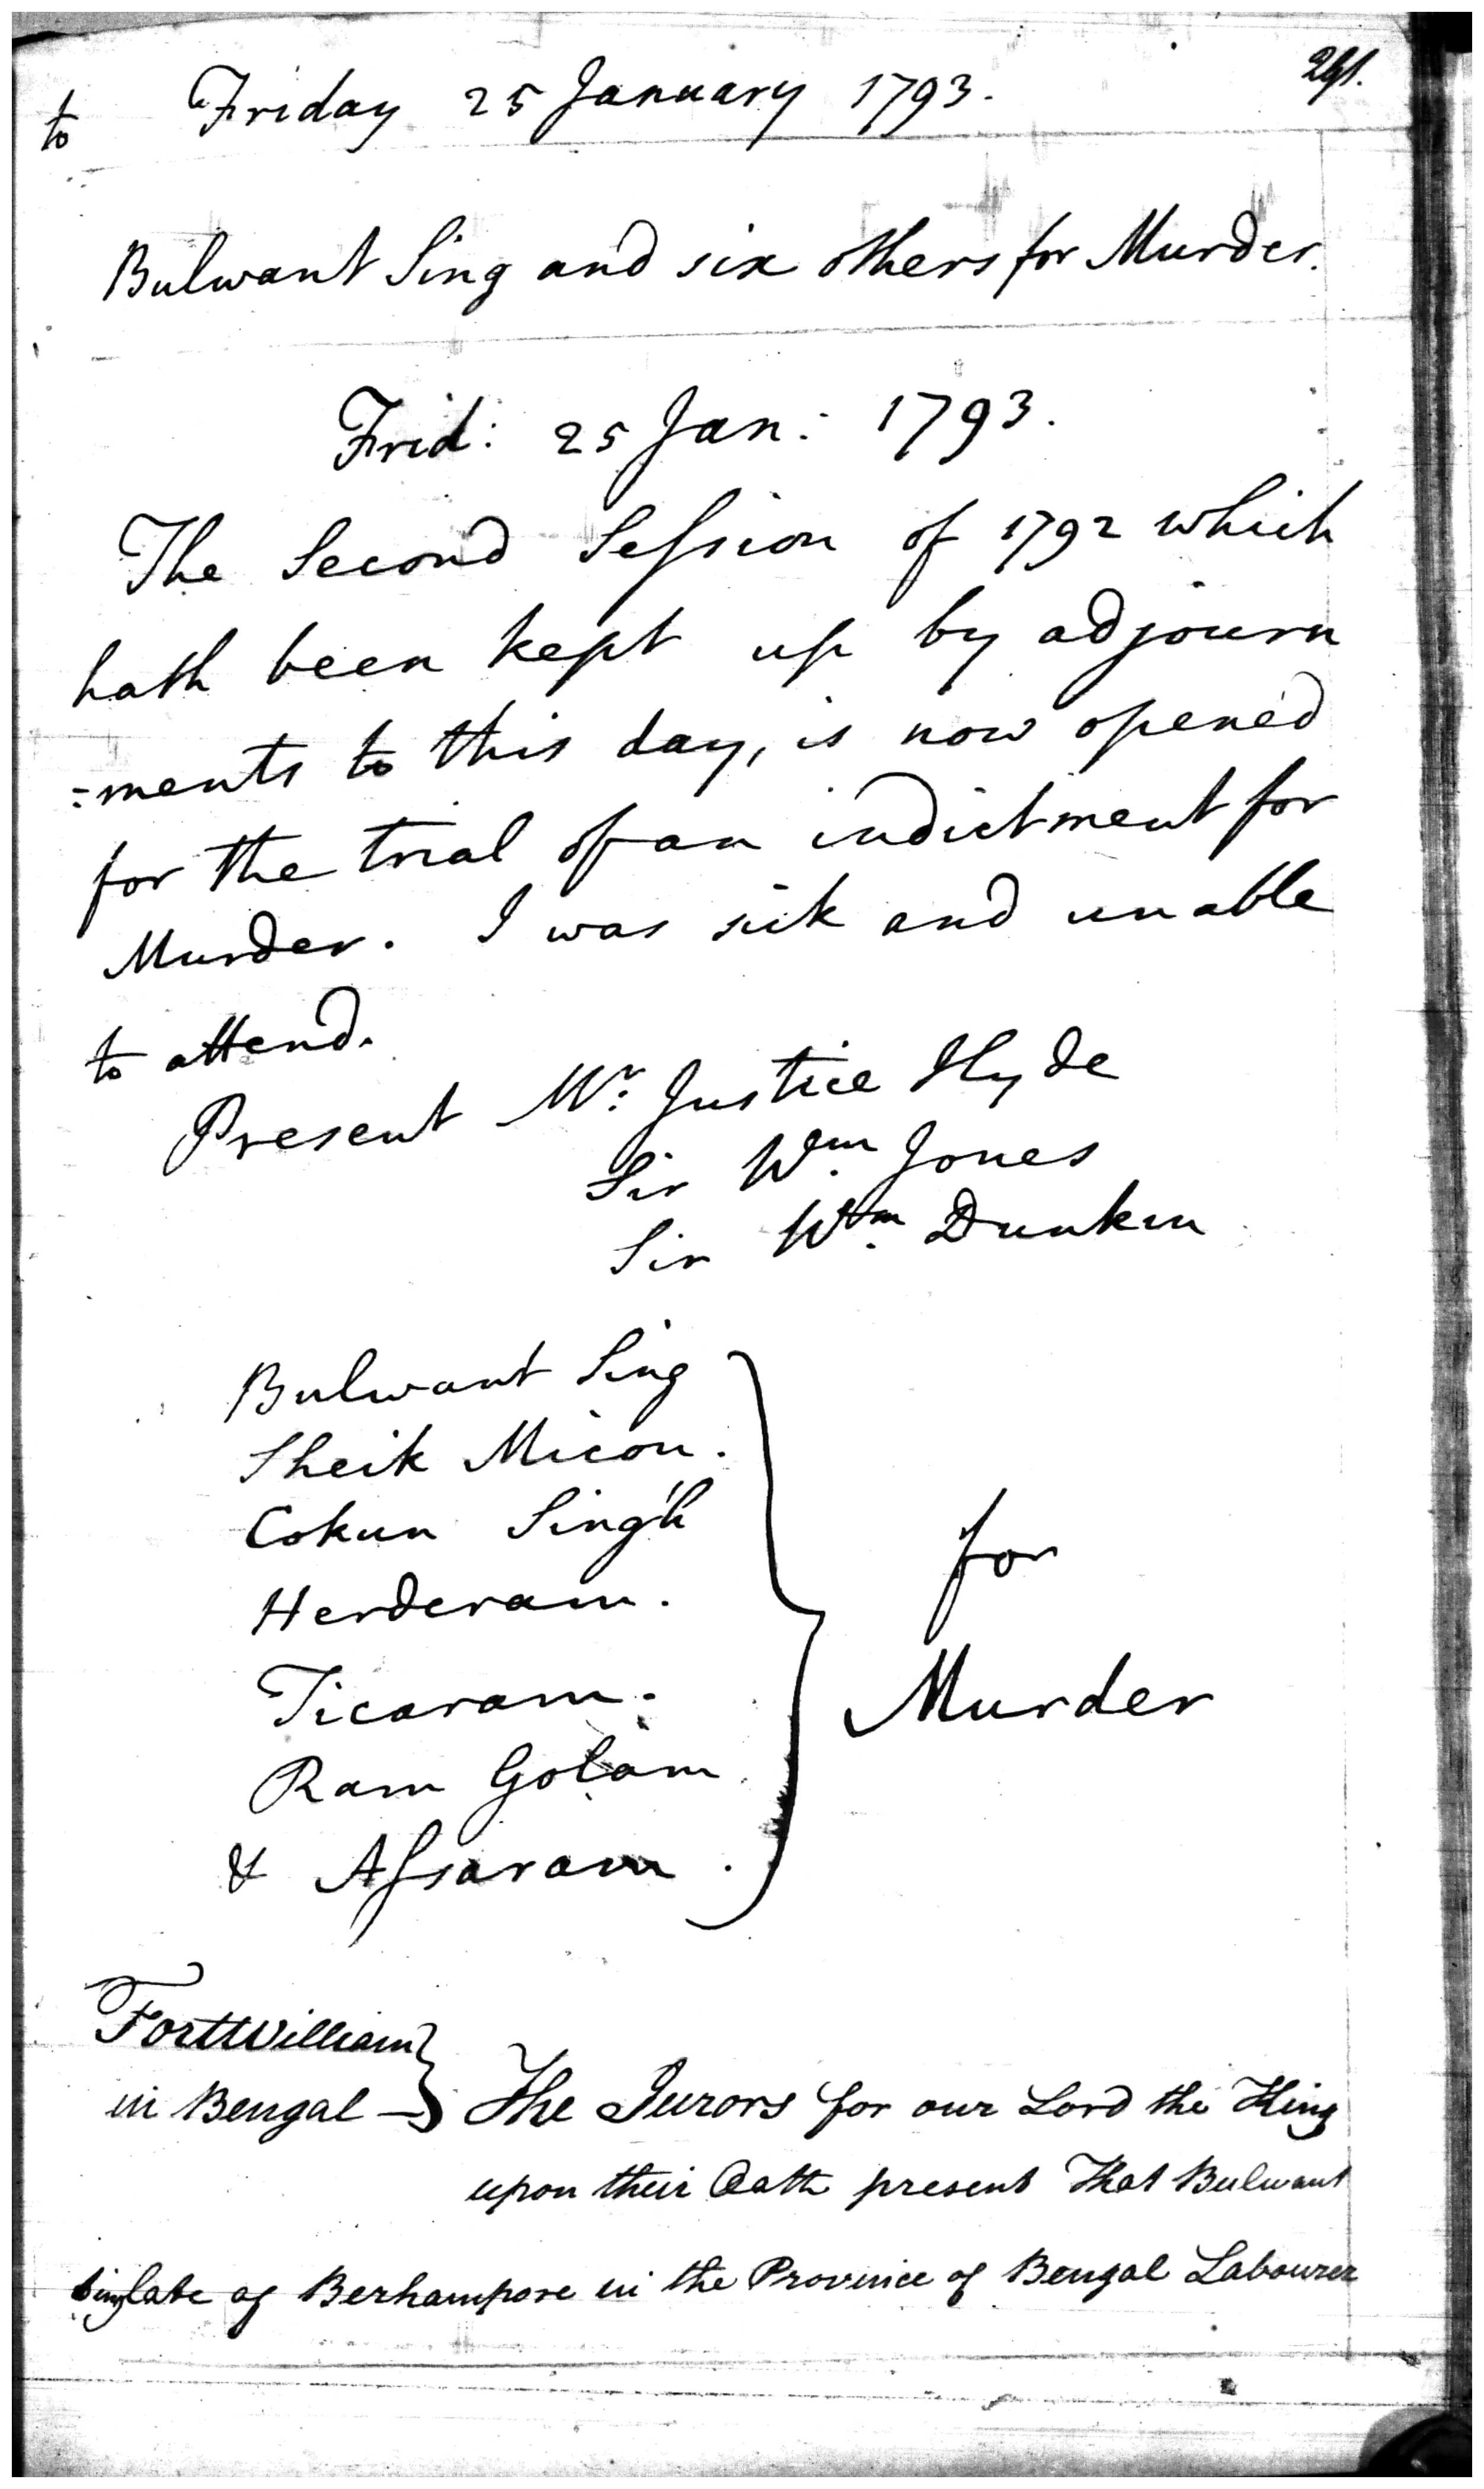 to Friday 25 January 1793.
Bulwant Sing and six others for Murder.
Frid: 25 Jan: 1793.
The Second Session of 1792 which
hath been kept up by adjourn
=ments to this day, is now opened
for the trial of an indictment for
Murder. I was sick and unable
to attend.
Present Mr: Justice Hyde
Sir Wm. Jones
Sir Wm. Dunkin
Bulwant Sing
Sheik Micon.
Cokun Singh
Herderam.
Ticaram.
Ram Golam
& Assaram.
for
Murder
Fort William
in Bengal
The Jurors for our Lord the King
upon their Oath present That Bulwant
Sing late of Berhampore in the Province of Bengal Labourer